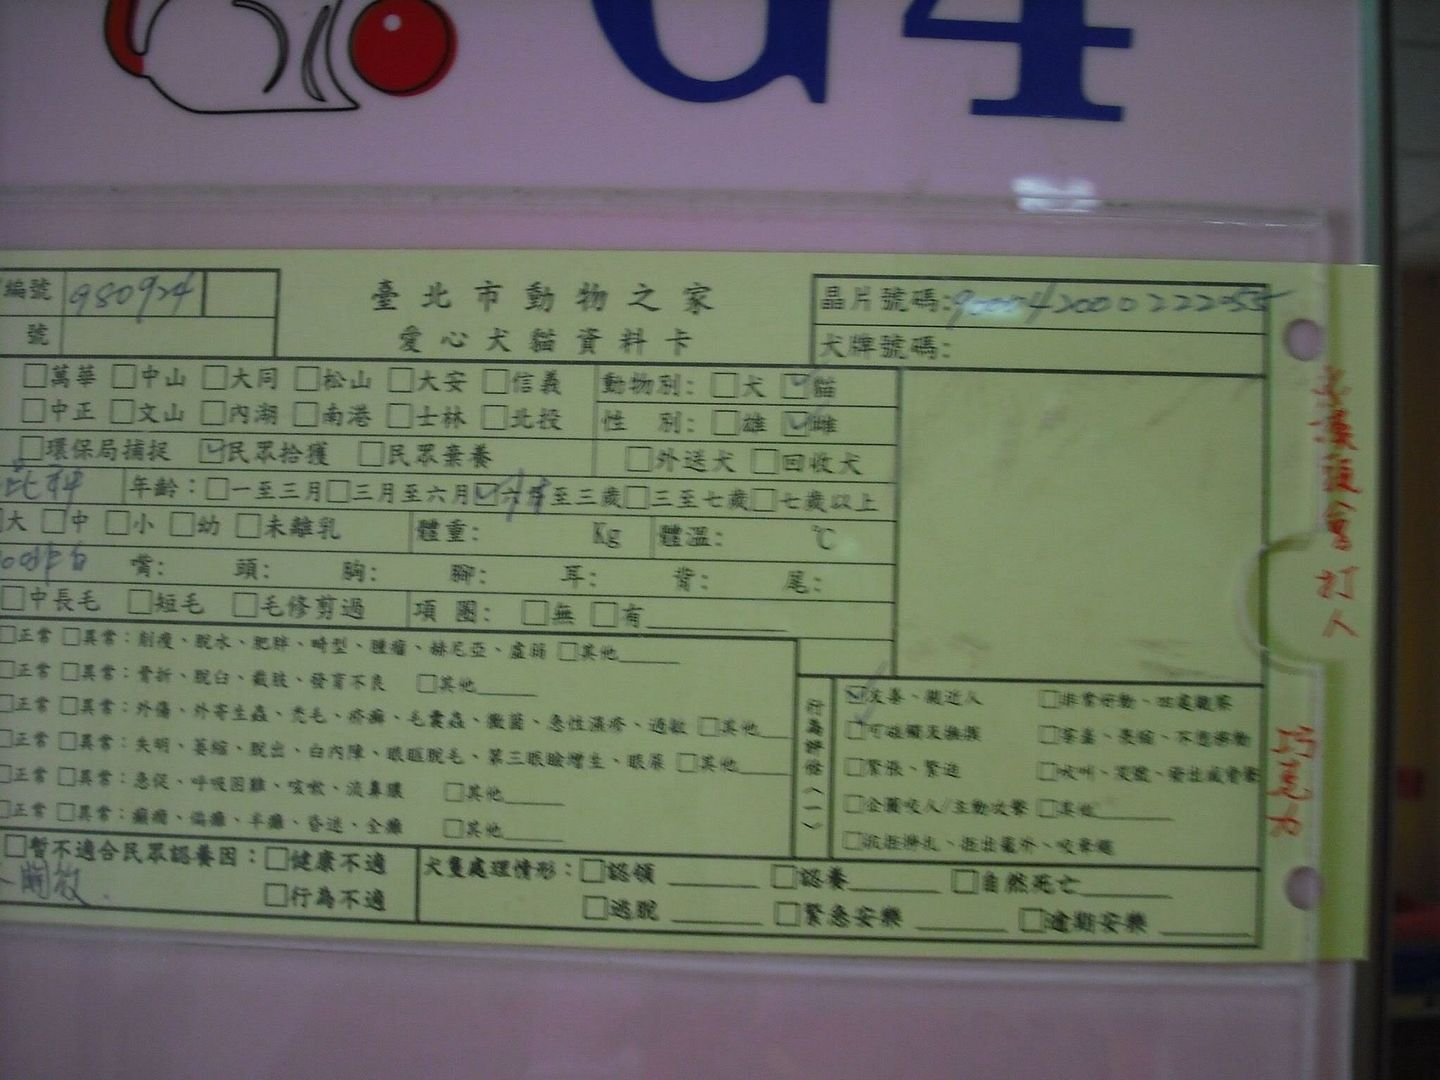 G4
編號 980924
號
臺北市動物之家
愛心犬貓資料卡
晶片號碼:900042000222055
犬牌號碼:
□萬華 □中山 □大同 □松山 □大安 □信義
□中正 □文山 □內湖 □南港 □士林 □北投
動物別: □犬 ☑貓
性 別: □雄 ☑雌
□環保局捕捉 ☑民眾拾獲 □民眾棄養
□外送犬 □回收犬
年齡:□一至三月□三月至六月☑六月至三歲□三至七歲□七歲以上
□大 □中 □小 □幼 □未離乳 體重: Kg 體溫: ℃
嘴: 頭: 胸: 腳: 耳: 背: 尾:
□中長毛 □短毛 □毛修剪過 項 圈: □無 □有
□正常 □異常:削瘦、脫水、肥胖、畸型、腫瘤、赫尼亞、虛弱 □其他
□正常 □異常:骨折、脫臼、截肢、發育不良 □其他
□正常 □異常:外傷、外寄生蟲、禿毛、疥癬、毛囊蟲、黴菌、急性濕疹、過敏 □其他
□正常 □異常:失明、萎縮、脫出、白內障、眼眶脫毛、第三眼瞼增生、眼屎 □其他
□正常 □異常:急促、呼吸困難、咳嗽、流鼻膿 □其他
□正常 □異常:癲癇、偏癱、半癱、昏迷、全癱 □其他
行為評估(一)
☑友善、親近人 □非常好動、四處觀察
☑可碰觸及撫摸 □害羞、畏縮、不想移動
□緊張、緊迫 □吠叫、哭號、發出威脅聲
□企圖咬人/主動攻擊 □其他
□抗拒掙扎、拒出籠外、咬牽繩
□暫不適合民眾認養因:□健康不適
□行為不適
開放
犬隻處理情形:□認領 □認養 □自然死亡
□逃脫 □緊急安樂 □逾期安樂
會打人
巧克力